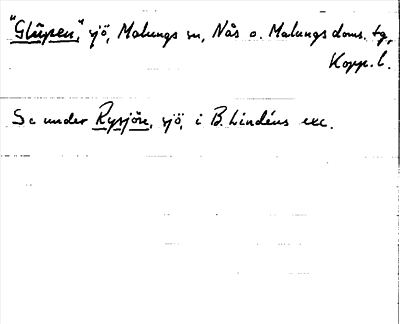 "Glûpen," sjö, Malungs sn, Nås o. Malungs doms. tg,
Kopp. l.
Se under Rysjön, sjö, i B. Lindéns exc.